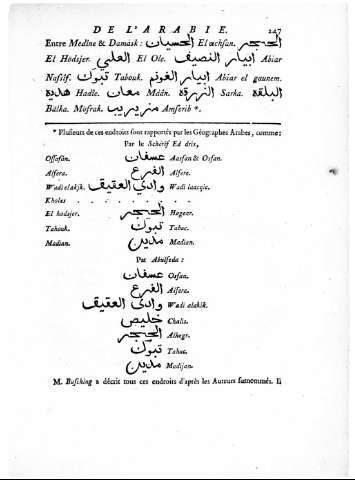 DE L'ARABIE. 247
Entre Medine & Damask: الحسيان El œchsan. الحجر
El Hödsjer. العلي El Ole. ابيار النصيف Abiar
Nassif. تبوك Tabouk. ابيار الغونم Abiar el gaunem.
هديه Hadie. معان Maân. الزرقه Sarka. البلقة
Bälka. Mofrak. منزيريب Amserib *.
* Plusieurs de ces endroits sont rapportés par les Géographes Arabes, comme:
Par le Schèrif Ed dris,
Offafân. عسفان Aasfan & Osfan.
Alfera. الفرع Alfere.
Wadi elakjk. وادي العقيق Wadi laacqic.
Kholas
El hadsjer. الحجر Hagear.
Tabouk. تبوك Tabuc.
Madian. مدين Madian.
Par Abulfeda:
عسفان Osfan.
الفرع Alfera.
وادي العقيق Wadi alakik.
خليص Chalis.
الحجر Alhegr.
تبوك Tabuc.
مدين Madijan.
M. Busching a décrit tous ces endroits d'après les Auteurs susnommés. Il